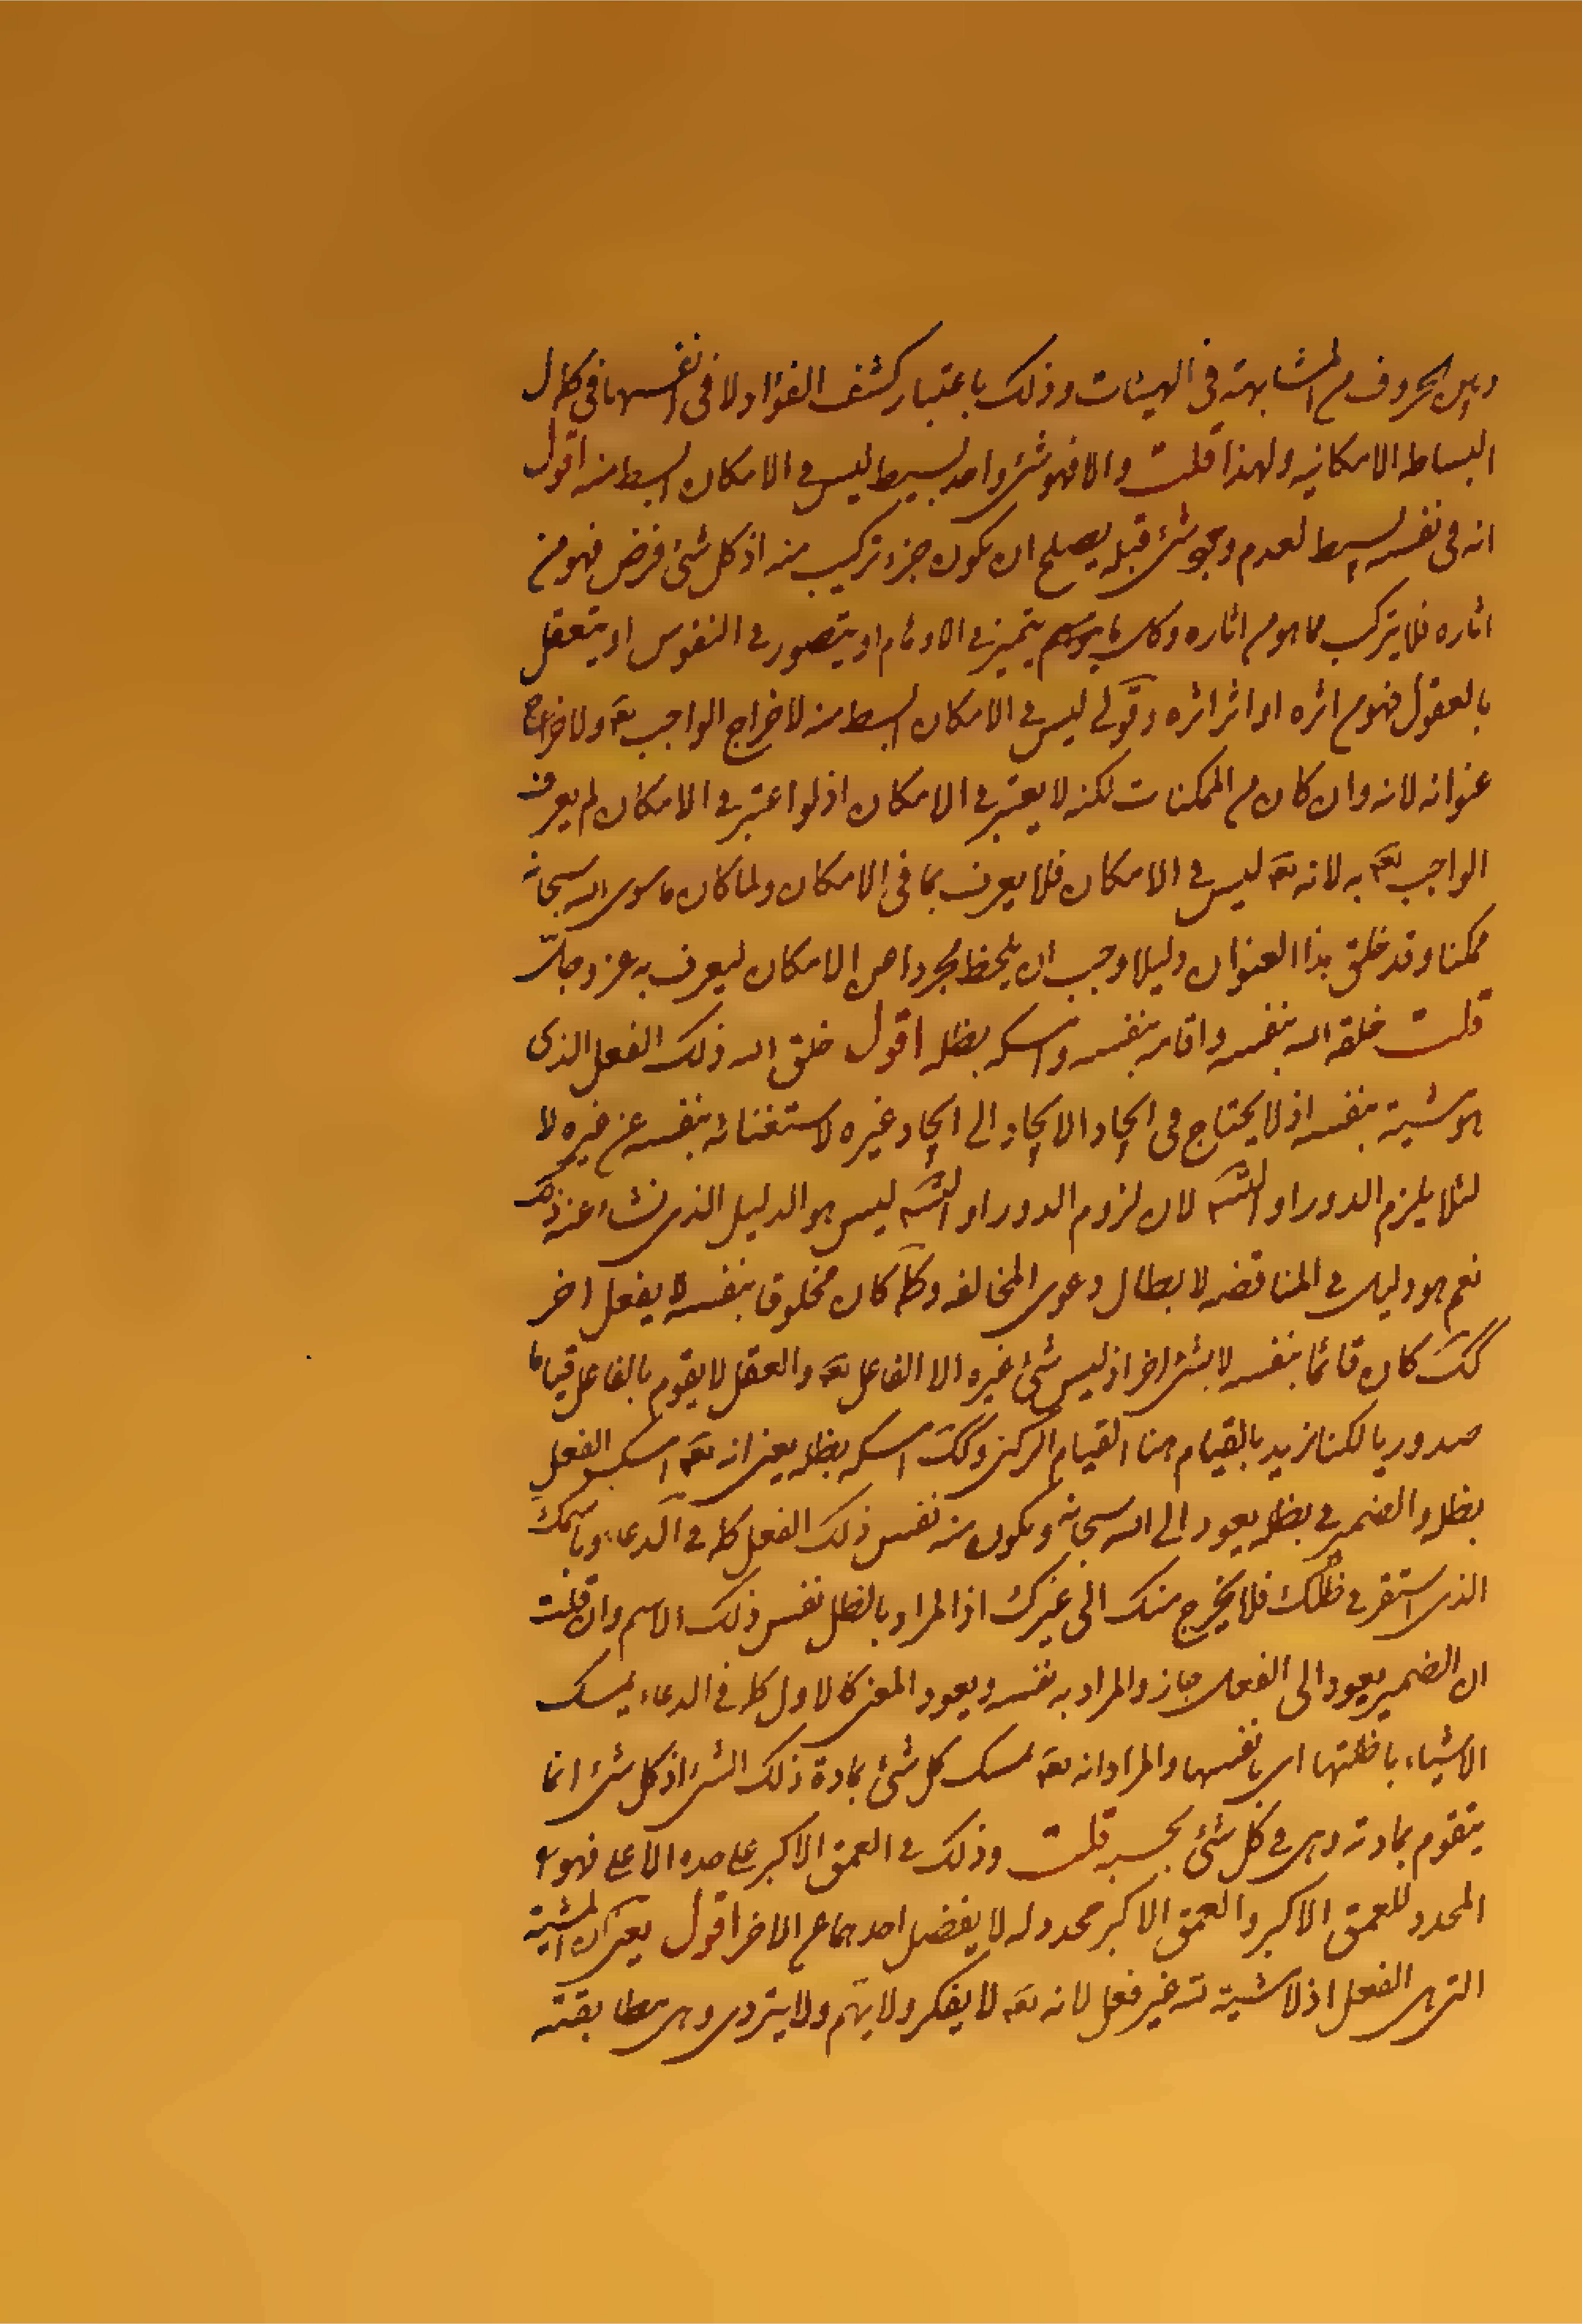 وبين الحروف من المشابهة في الهيئات وذلك باعتبار كشف الفؤاد لا في انفسها في كمال
البساطه الامكانيه ولهذا قلت والا فهو شئ واحد بسيط ليس في الامكان ابسط منه اقول
انه في نفسه بسيط لعدم وجود شئ قبله يصلح ان يكون جزء تركيب منه اذ كل شئ فرض فهو من
اثاره فلا يتركب مما هو من اثاره وكل ما يتوهم يتميز في الاوهام او يتصور في النفوس او يتعقل
بالعقول فهو من اثره او اثر اثره وقولي ليس في الامكان ابسط منه لاخراج الواجب تعه ولاخراج
عنوانه لانه وان كان من الممكنات لكنه لا يعتبر في الامكان اذ لو اعتبر في الامكان لم يعرف
الواجب تعه به لانه تعه ليس في الامكان فلا يعرف بما في الامكان ولما كان ما سوى الله سبحانه
ممكنا وقد خلق هذا العنوان دليلا وجب ان يلحظ مجردا عن الامكان ليعرف به عز وجل
قلت خلقه الله بنفسه واقامه بنفسه وامسكه بظله اقول خلق الله ذلك الفعل الذي
هو مشيته بنفسه اذ لا يحتاج في ايجاد الايجاد الى ايجاد غيره لاستغنائه بنفسه عن غيره لا
لئلا يلزم الدور او التسه لان لزوم الدور او التسه ليس هو الدليل الذي نشاء عنه ذلك
نعم هو دليل في المناقضه لابطال دعوى المخالفه وكما كان مخلوقا بنفسه لا بفعل اخر
كك كان قائما بنفسه لا بشئ اخر اذ ليس شئ غيره الا الفاعل تعه والعقل لا يقوم بالفاعل قياما
صدوريا لكنا نريد بالقيام هنا القيام الركني وكك امسكه بظله يعني انه تعه امسك الفعل
بظله والضمير في بظله يعود الى الله سبحانه ويكون منه نفس ذلك الفعل كما في الدعاء وباسمك
الذي استقر في ظلك فلا يخرج منك الى غيرك اذ المراد بالظل نفس ذلك الاسم وان قلت
ان الضمير يعود الى الفعل جاز والمراد به نفسه ويعود المعنى كالاول كما في الدعاء يمسك
الاشياء باظلتها اي بانفسها والمراد انه تعه يمسك كل شئ بمادة ذلك الشئ اذ كل شئ انما
يتقوم بمادته وهي في كل شئ بحسبه قلت وذلك في العمق الاكبر على حده الاعلى فهو
المحدد للعمق الاكبر والعمق الاكبر محدد له لا يفضل احدهما على الاخر اقول يعني ان المشية
التي هي الفعل اذ لا مشية له غير فعل لانه تعه لا يفكر ولا يهم ولا يتروى وهي مطابقة